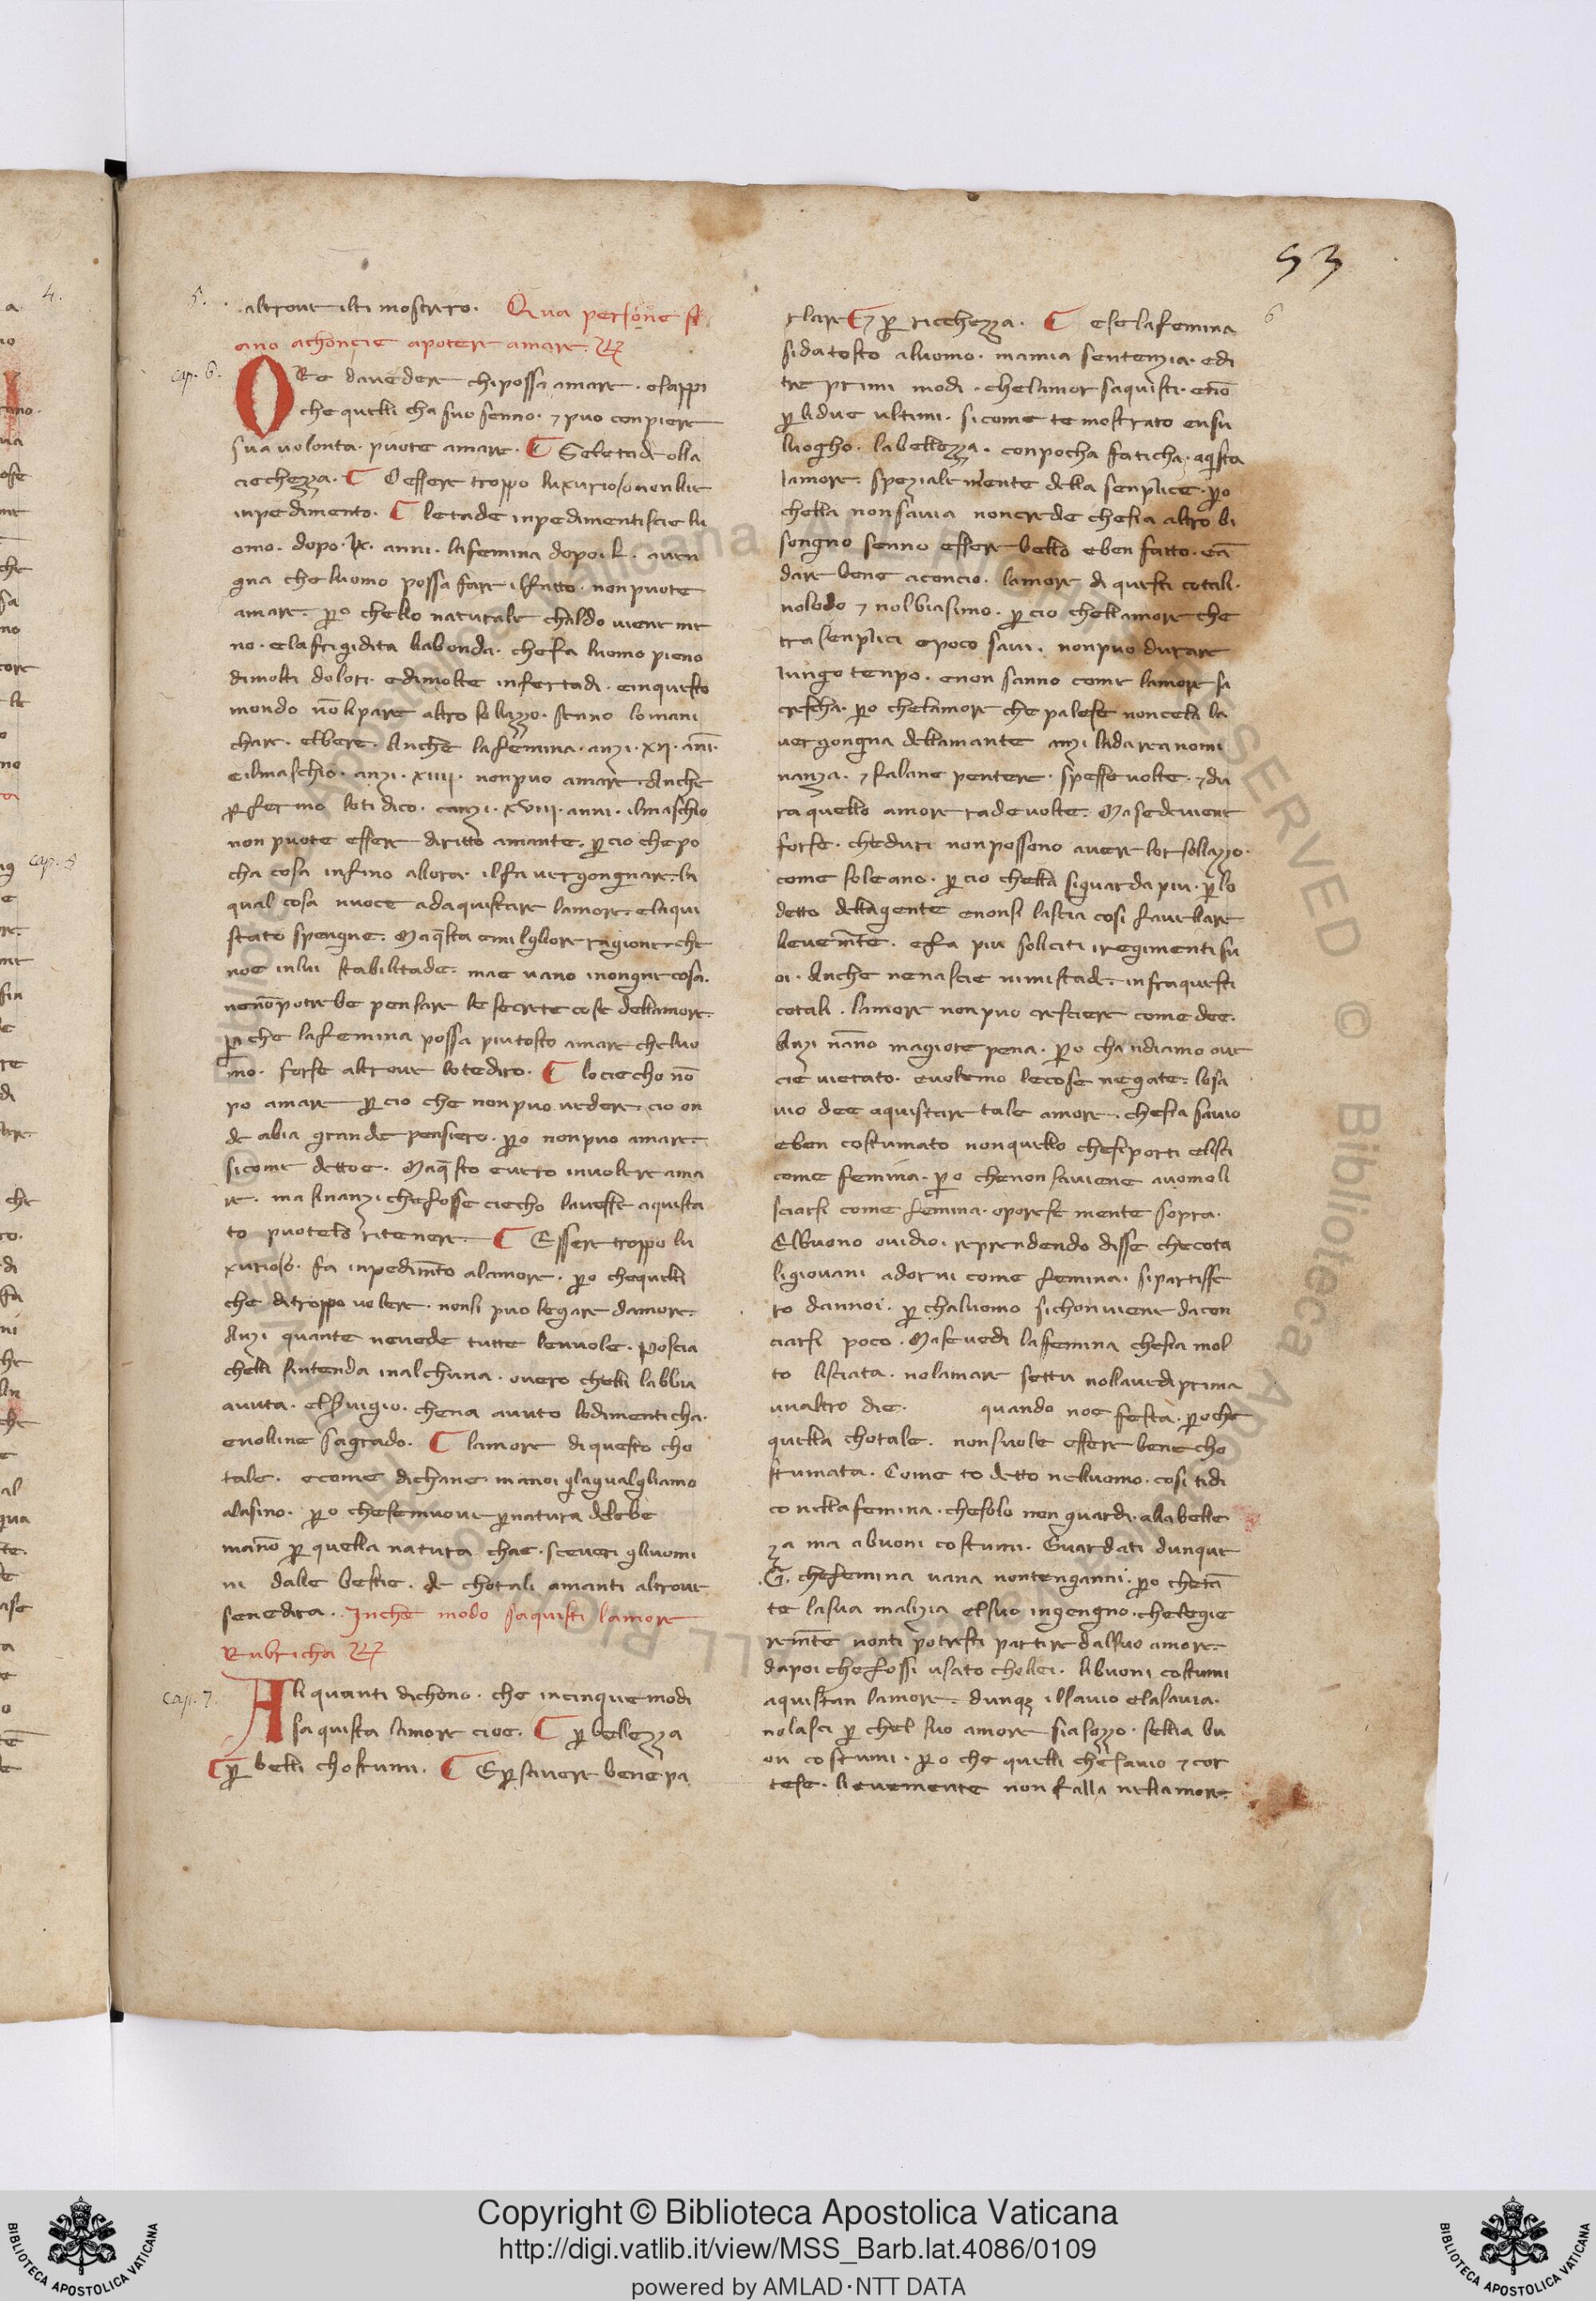 53
5.
altroue ilti mosterro. Qua persone si
ano achoncie apotere amare. R
cap. 6.
ORe dauedere chi possa amare. esappi
che quelli cha suo senno. ⁊ puo conpiere
sua uolonta. puote amare. Seletade olla
ciechezza. O essere troppo luxurioso nonlue
inpedimento. letade inpedimentiscie lu
omo. dopo. lx. anni. lafemina dopo i. l. auen
gna che luomo possa fare il fatto. non puote
amare. ꝑo chello naturale chaldo uiene me
no. elafrigidita liabonda. chefa luomo pieno
dimolti dolori. edimolte infertadi. einquesto
mondo nō lipare altro sollazzo. senno lomani
chare. elbere. Anche lafemina. anzi. xij. anī.
eilmaschio. anzi. xiiij. non puo amare. Anche
ꝑ fermo loti dico. canzi. xviij. anni. ilmaschio
non puote essere diritto amante. ꝑ cio che po
cha cosa infino allora. il fa uergongnare. la
qual cosa nuoce adaquistare lamore. elaqui
stato spengne. Maq̄sta emilgliore ragione. che
noe inlui stabilitade. mae uano inongne cosa.
nenō potrebe pensare le secrete cose dellamore.
ꝑ che lafemina possa piutosto amare cheluo
mo. forse altroue lotediro. lociecho nō
po amare ꝑ cio che non puo uedere. cio on
de abia grande pensiero. ꝑo non puo amare.
sicome dettoe. Maq̄sto euero inuolere ama
re. ma sinanzi chefosse ciecho lauesse aquista
to puotelo ritenere. Essere troppo lu
xurioso. fa inpedimēto alamore. ꝑo chequelli
che ditroppo uolere. nonsi puo legare damore.
Anzi quante neuede tutte leuuole. Poscia
chelli sintenda inalchuna. ouero chelli labbia
auuta. elseruigio. chena auuto lodimenticha.
enolline sagrado. lamore diquesto cho
tale. ecome dichane. manoi q̄laqualgliamo
alasino. ꝑo chesemuoue ꝑnatura delebe
mano ꝑ quella natura chae. sceueri gliuomi
ni dalle bestie. de chotali amanti altroue
senedira. Inche modo saquisti lamore
Rubricha R
cap. 7.
Ali quanti dichono. che incinque modi
saquista lamore cioe. ꝑ bellezza
ꝑ belli chostumi. E ꝑ sciuere bene pa
6
rlare E ⁊ ꝑ ricchezza. ese lafemina
sidatosto aluomo. mamia sentenzia. edi
tre primi modi. chelamor saquisti. enō
ꝑ lidue ultimi. sicome te mostrato ensu
luogho. labellezza. conpocha faticha. aq̄sta
lamore. spezialemente della senplice. ꝑo
chella nonsauia noncrede chesia altro bi
songno senno essere bello eben fatto. eā
dare bene aconcio. lamore di questi cotali.
nolodo ⁊ nolbiasimo. ꝑ cio chellamore che
tra senplici epoco saui. nonpuo durare
lungo tenpo. enon sanno come lamore sa
crescha. ꝑo chelamore che palese noncela la
uergongna dellamante anzi lidarea nomi
nanza. ⁊ falane pentere. spesse uolte. ⁊ du
ra quello amore radeuolte. Masediuiene
forse. cheduri nonpossono auere lor sollazzo.
come soleano. ꝑ cio chella siguarda piu. ꝑ lo
detto dellagente enonsi lascia cosi fauellare
leuemēte. efa piu soliciti iregimenti su
oi. Anche nenascie nimistade. infraquesti
cotali. lamore non puo cresciere come dee.
Anzi nāno magiore pena. ꝑo chandiamo oue
cie uietato. euolemo lecose negate. losa
uio dee aquistare tale amore. chesia sauio
eben costumato nonquello chesiporti elisci
come femina. ꝑo chenon sauiene auomo li
sciarsi come femina. oporsi mente sopra.
Elbuono ouidio. reprendendo disse. checota
ligiouani adorni come femina. sipartisse
ro dannoi. ꝑ chaluomo sichonuiene dacon
ciarsi poco. Maseuedi lafemina chesia mol
to lisciata. nolamare settu nollauedi prima
unaltro die. quando noe festa. ꝑoche
quella chotale. nonsuole essere bene cho
stumata. Come to detto nelluomo. cosi tidi
co nellafemina. chesolo non guardi. alabelle
za ma abuoni costumi. Guardati dunque
.G. chefemina uana nontenganni. ꝑo chetā
te lasua malizia elsuo ingengno. chelegie
remēte nonti potresti partire dalsuo amore.
dapoi chefossi usato chollei. libuoni costumi
aquistan lamore. dunqꝫ ilsauio elasauia.
nolasci ꝑ chel suo amore sia sozzo. sellia bu
on costumi. ꝑo che quelli che sauio ⁊ cor
tese. lieuemente non falla nellamore.
4.
cap. 5
Copyright © Biblioteca Apostolica Vaticana
http://digi.vatlib.it/view/MSS_Barb.lat.4086/0109
powered by AMLAD·NTT DATA
BIBLIOTECA APOSTOLICA VATICANA
BIBLIOTECA APOSTOLICA VATICANA